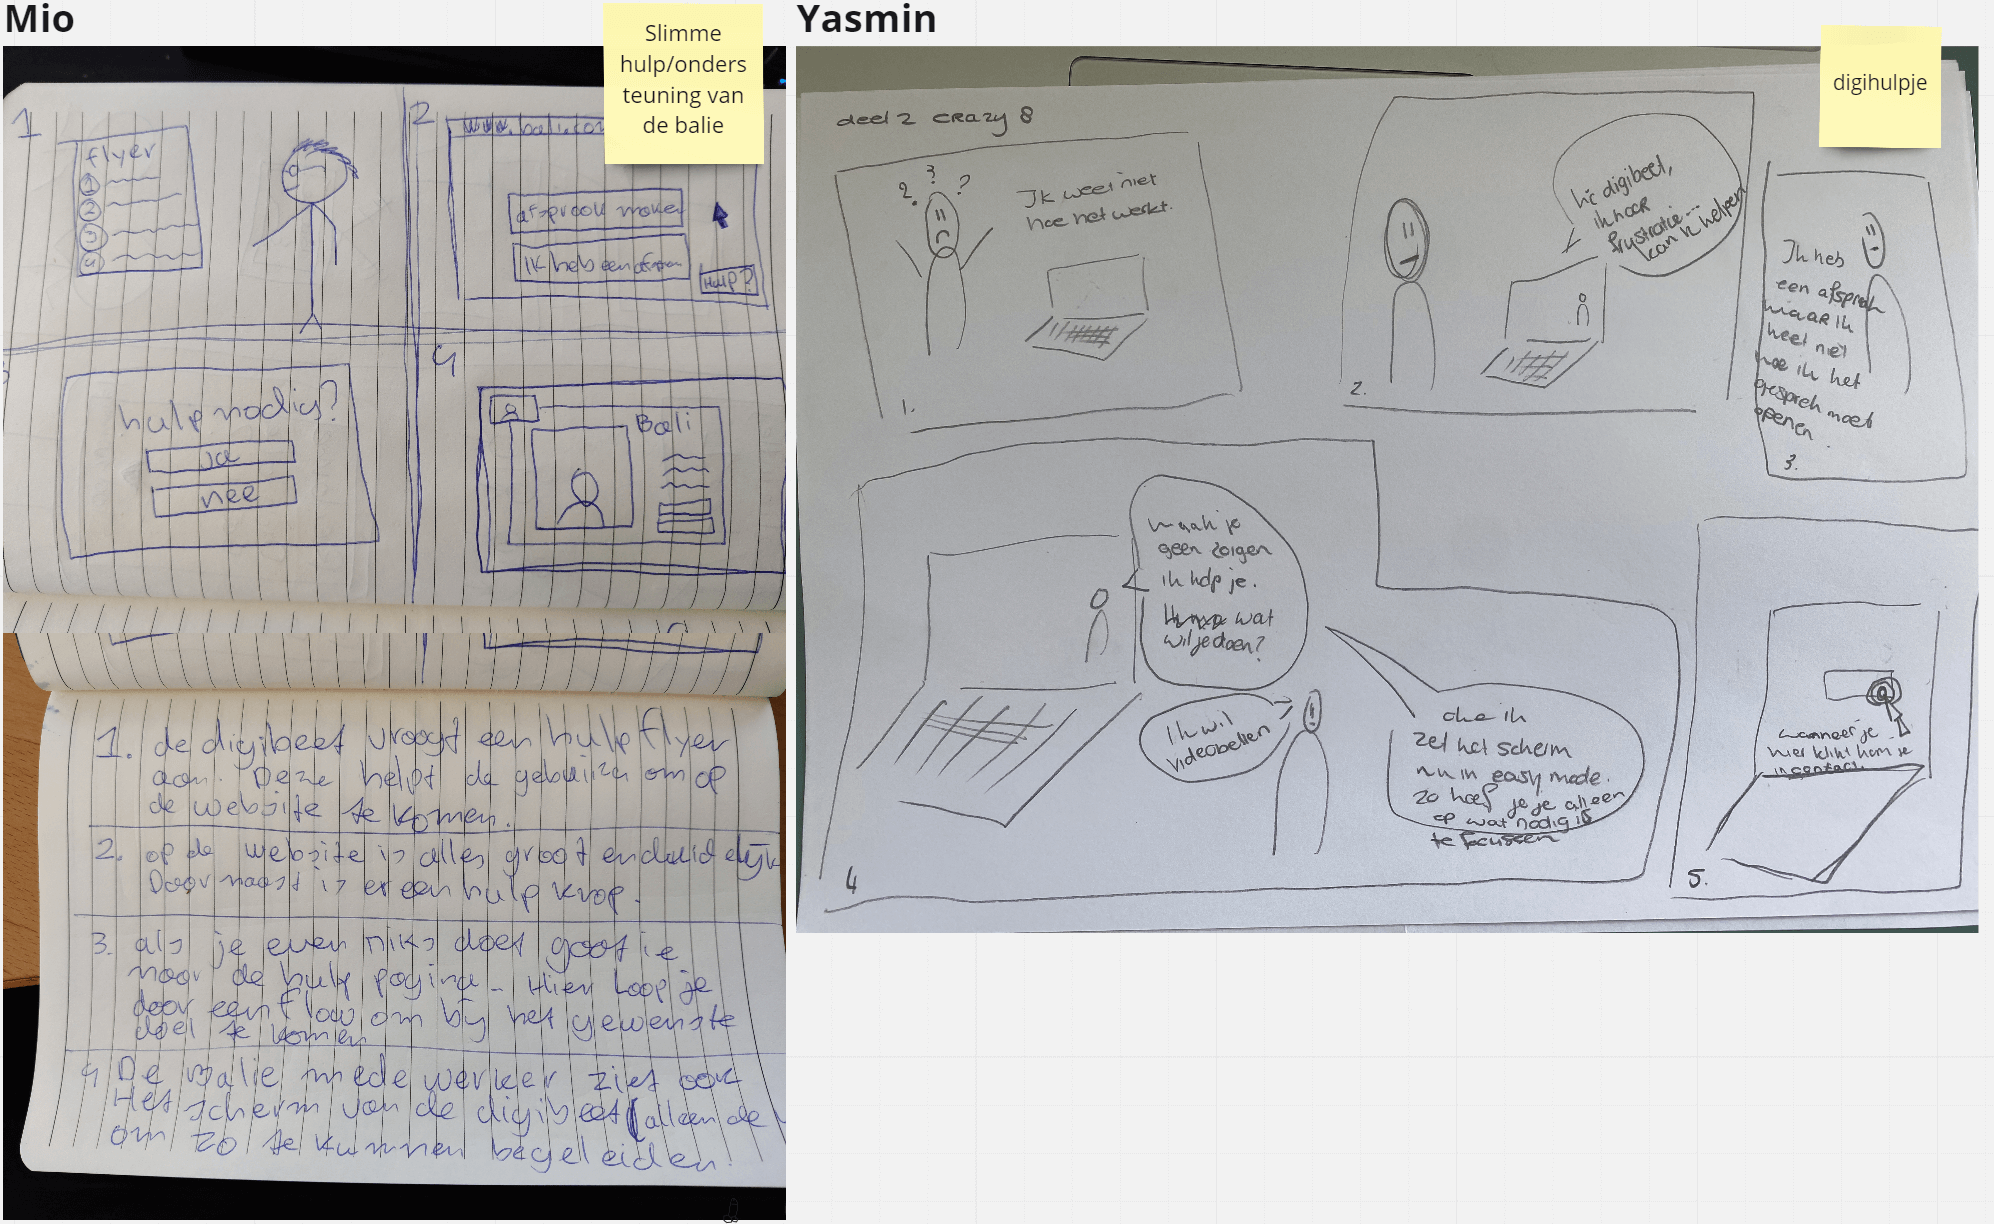 Mio
Slimme
hulp/onders
teuning van
de balie
1
flyer
1
2
3
4
2
www.bali.com
afspraak maken
ik heb een
Hulp?
hulp nodig?
ja
nee
4
Bali
1. de digibeet vraagt een hulp flyer
aan. Deze helpt de gebruiker om op
de website te komen.
2. op de website is alles groot en duidelijk
Daarnaast is er een hulp knop.
3. als je even niks doet gaat ie
naar de hulp pagina. Hier loop je
door een flow om bij het gewenste
doel te komen
4 De balie mede werker ziet ook
Het scherm van de digibeet (alleen de
om zo te kunnen begeleiden.
Yasmin
digihulpje
deel 2 crazy 8
? ? ?
Ik weet niet
hoe het werkt.
1.
hi digibeet,
ik hoor
frustratie...
kan ik helpen
2.
Ik heb
een afspraak
maar ik
weet niet
hoe ik het
gesprek moet
openen.
3.
maak je
geen zorgen
ik help je.
wat
wil je doen?
Ik wil
videobellen
oke ik
zet het scherm
nu in easy mode.
zo hoef je je alleen
op wat nodig is
te focussen
4
wanneer je
hier klikt kom je
in contact
5.